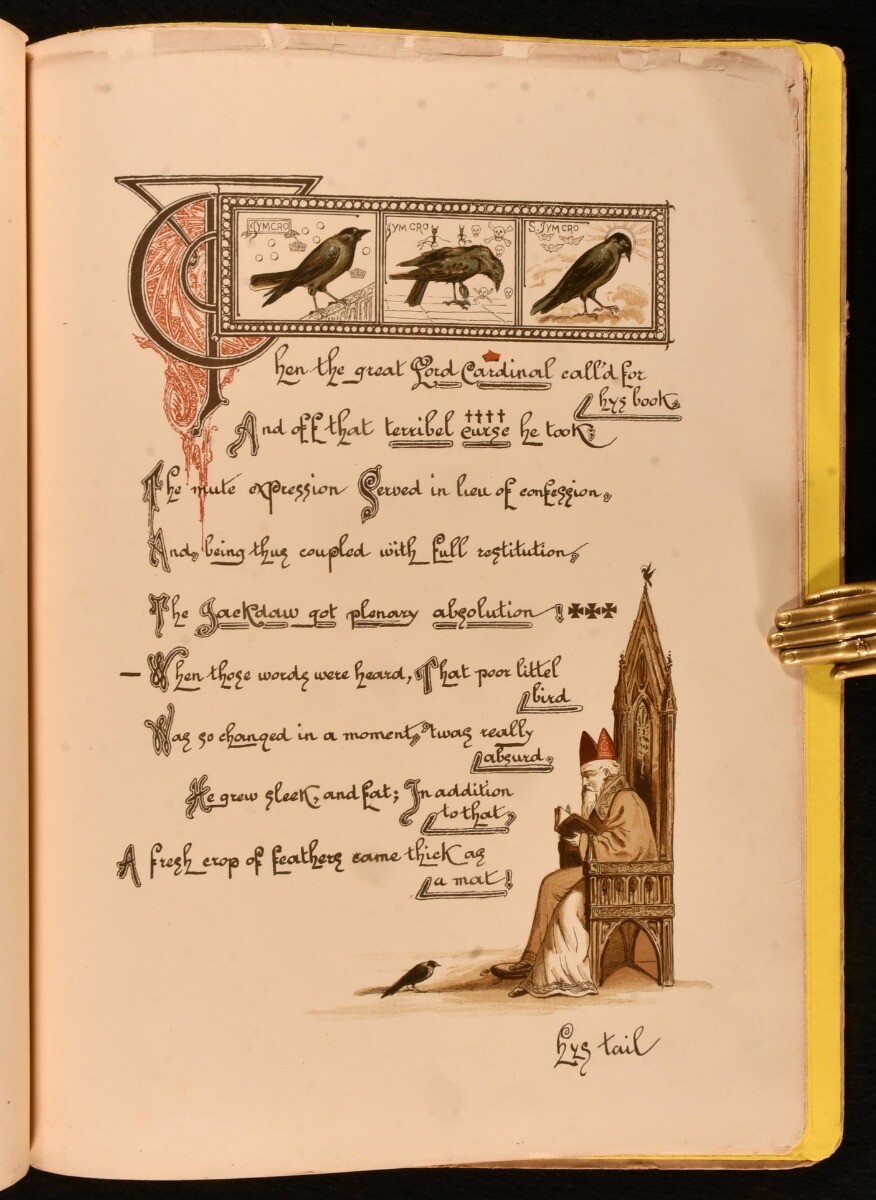 JYMCRO
JYM CRO
S. JYM CRO
Then the great Lord Cardinal call'd for
hys book,
And off that terribel curse he took;
The mute expression Served in lieu of confession,
And, being thus coupled with full restitution,
The Jackdaw got plenary absolution!
— When those words were heard, That poor littel
bird
Was so changed in a moment, 'twas really
absurd,
He grew sleek, and fat; In addition
to that,
A fresh crop of feathers came thick as
a mat!
hys tail